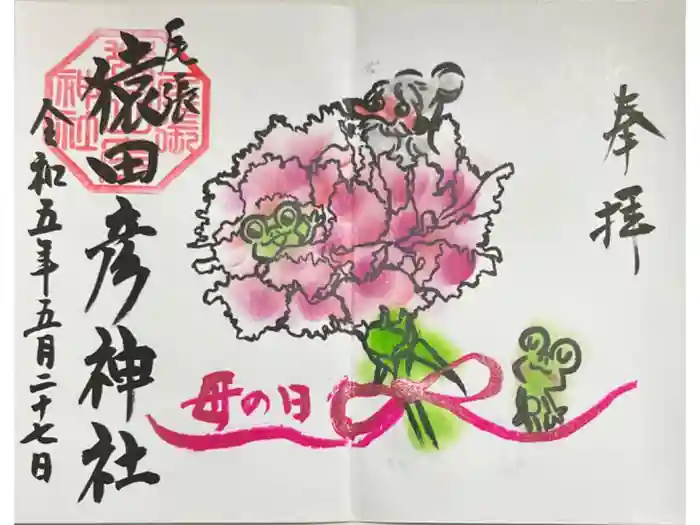 奉拝
母の日
尾張
猿田彦神社
令和五年五月二十七日